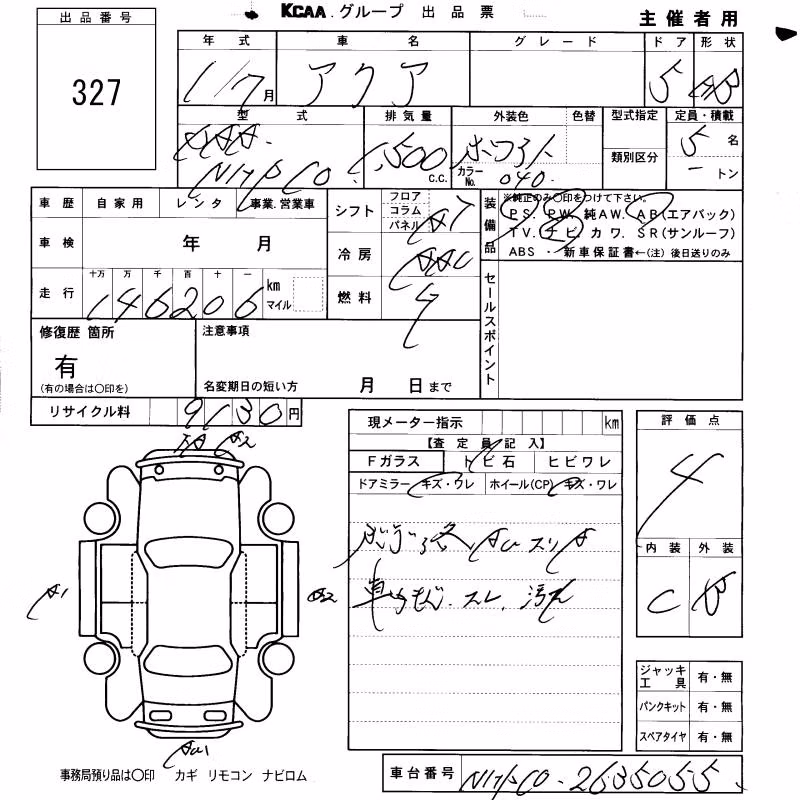 KCAA.グループ 出品票
主催者用
出品番号
327
年式 車名 グレード ドア 形状
1/7月 アクア 5 HB
型式 排気量 外装色 色替 型式指定 定員・積載
類別区分
DAA-
NHP10 1,500 C.C. ホワイト カラーNo. 040 5名
トン
車歴 自家用 レンタ 事業.営業車
車検 年 月
走行 十万 万 千 百 十 一 km マイル
146206
シフト フロア コラム パネル AT
冷房 AAC
燃料
装備品 ※純正のみ〇印をつけて下さい。
PS. PW. 純AW. AB(エアバック)
TV. ナビ. カワ. SR(サンルーフ)
ABS ・ 新車保証書←(注) 後日送りのみ
セールスポイント
修復歴 箇所
有
(有の場合は〇印を)
注意事項
名変期日の短い方 月 日まで
リサイクル料 9130円
現メーター指示 km
【査定員記入】
Fガラス トビ石 ヒビワレ
ドアミラー キズ・ワレ ホイール(CP) キズ・ワレ
スリキ
車内 スレ. 汚れ
評価点
4
内装 外装
C B
A2
A1
ジャッキ工具 有・無
パンクキット 有・無
スペアタイヤ 有・無
事務局預り品は〇印 カギ リモコン ナビロム
車台番号 NHP10-2635055